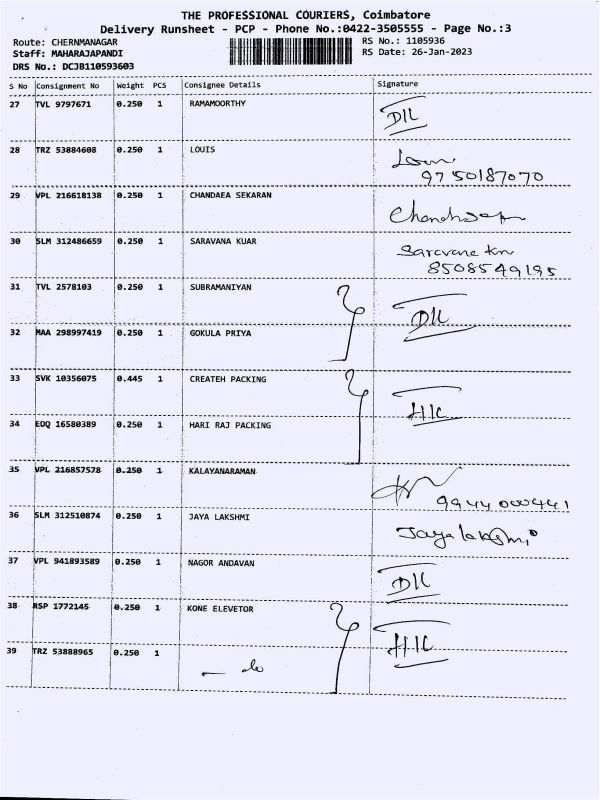 THE PROFESSIONAL COURIERS, Coimbatore
Delivery Runsheet - PCP - Phone No.:0422-3505555 - Page No.:3
Route: CHERNMANAGAR
Staff: MAHARAJAPANDI
DRS No.: DCJB110593603
RS No.: 1105936
RS Date: 26-Jan-2023
S No Consignment No Weight PCS Consignee Details Signature
27 TVL 9797671 0.250 1 RAMAMOORTHY
28 TRZ 53884608 0.250 1 LOUIS
9750187070
29 VPL 216618138 0.250 1 CHANDAEA SEKARAN
30 SLM 312486659 0.250 1 SARAVANA KUAR Saravana Km
8508549195
31 TVL 2578103 0.250 1 SUBRAMANIYAN
32 MAA 298997419 0.250 1 GOKULA PRIYA
33 SVK 10356075 0.445 1 CREATEH PACKING
34 EDQ 16580389 0.250 1 HARI RAJ PACKING
35 VPL 216857578 0.250 1 KALAYANARAMAN
9944000441
36 SLM 312510874 0.250 1 JAYA LAKSHMI Jayalakshmi
37 VPL 941893589 0.250 1 NAGOR ANDAVAN
38 RSP 1772145 0.250 1 KONE ELEVETOR
39 TRZ 53888965 0.250 1